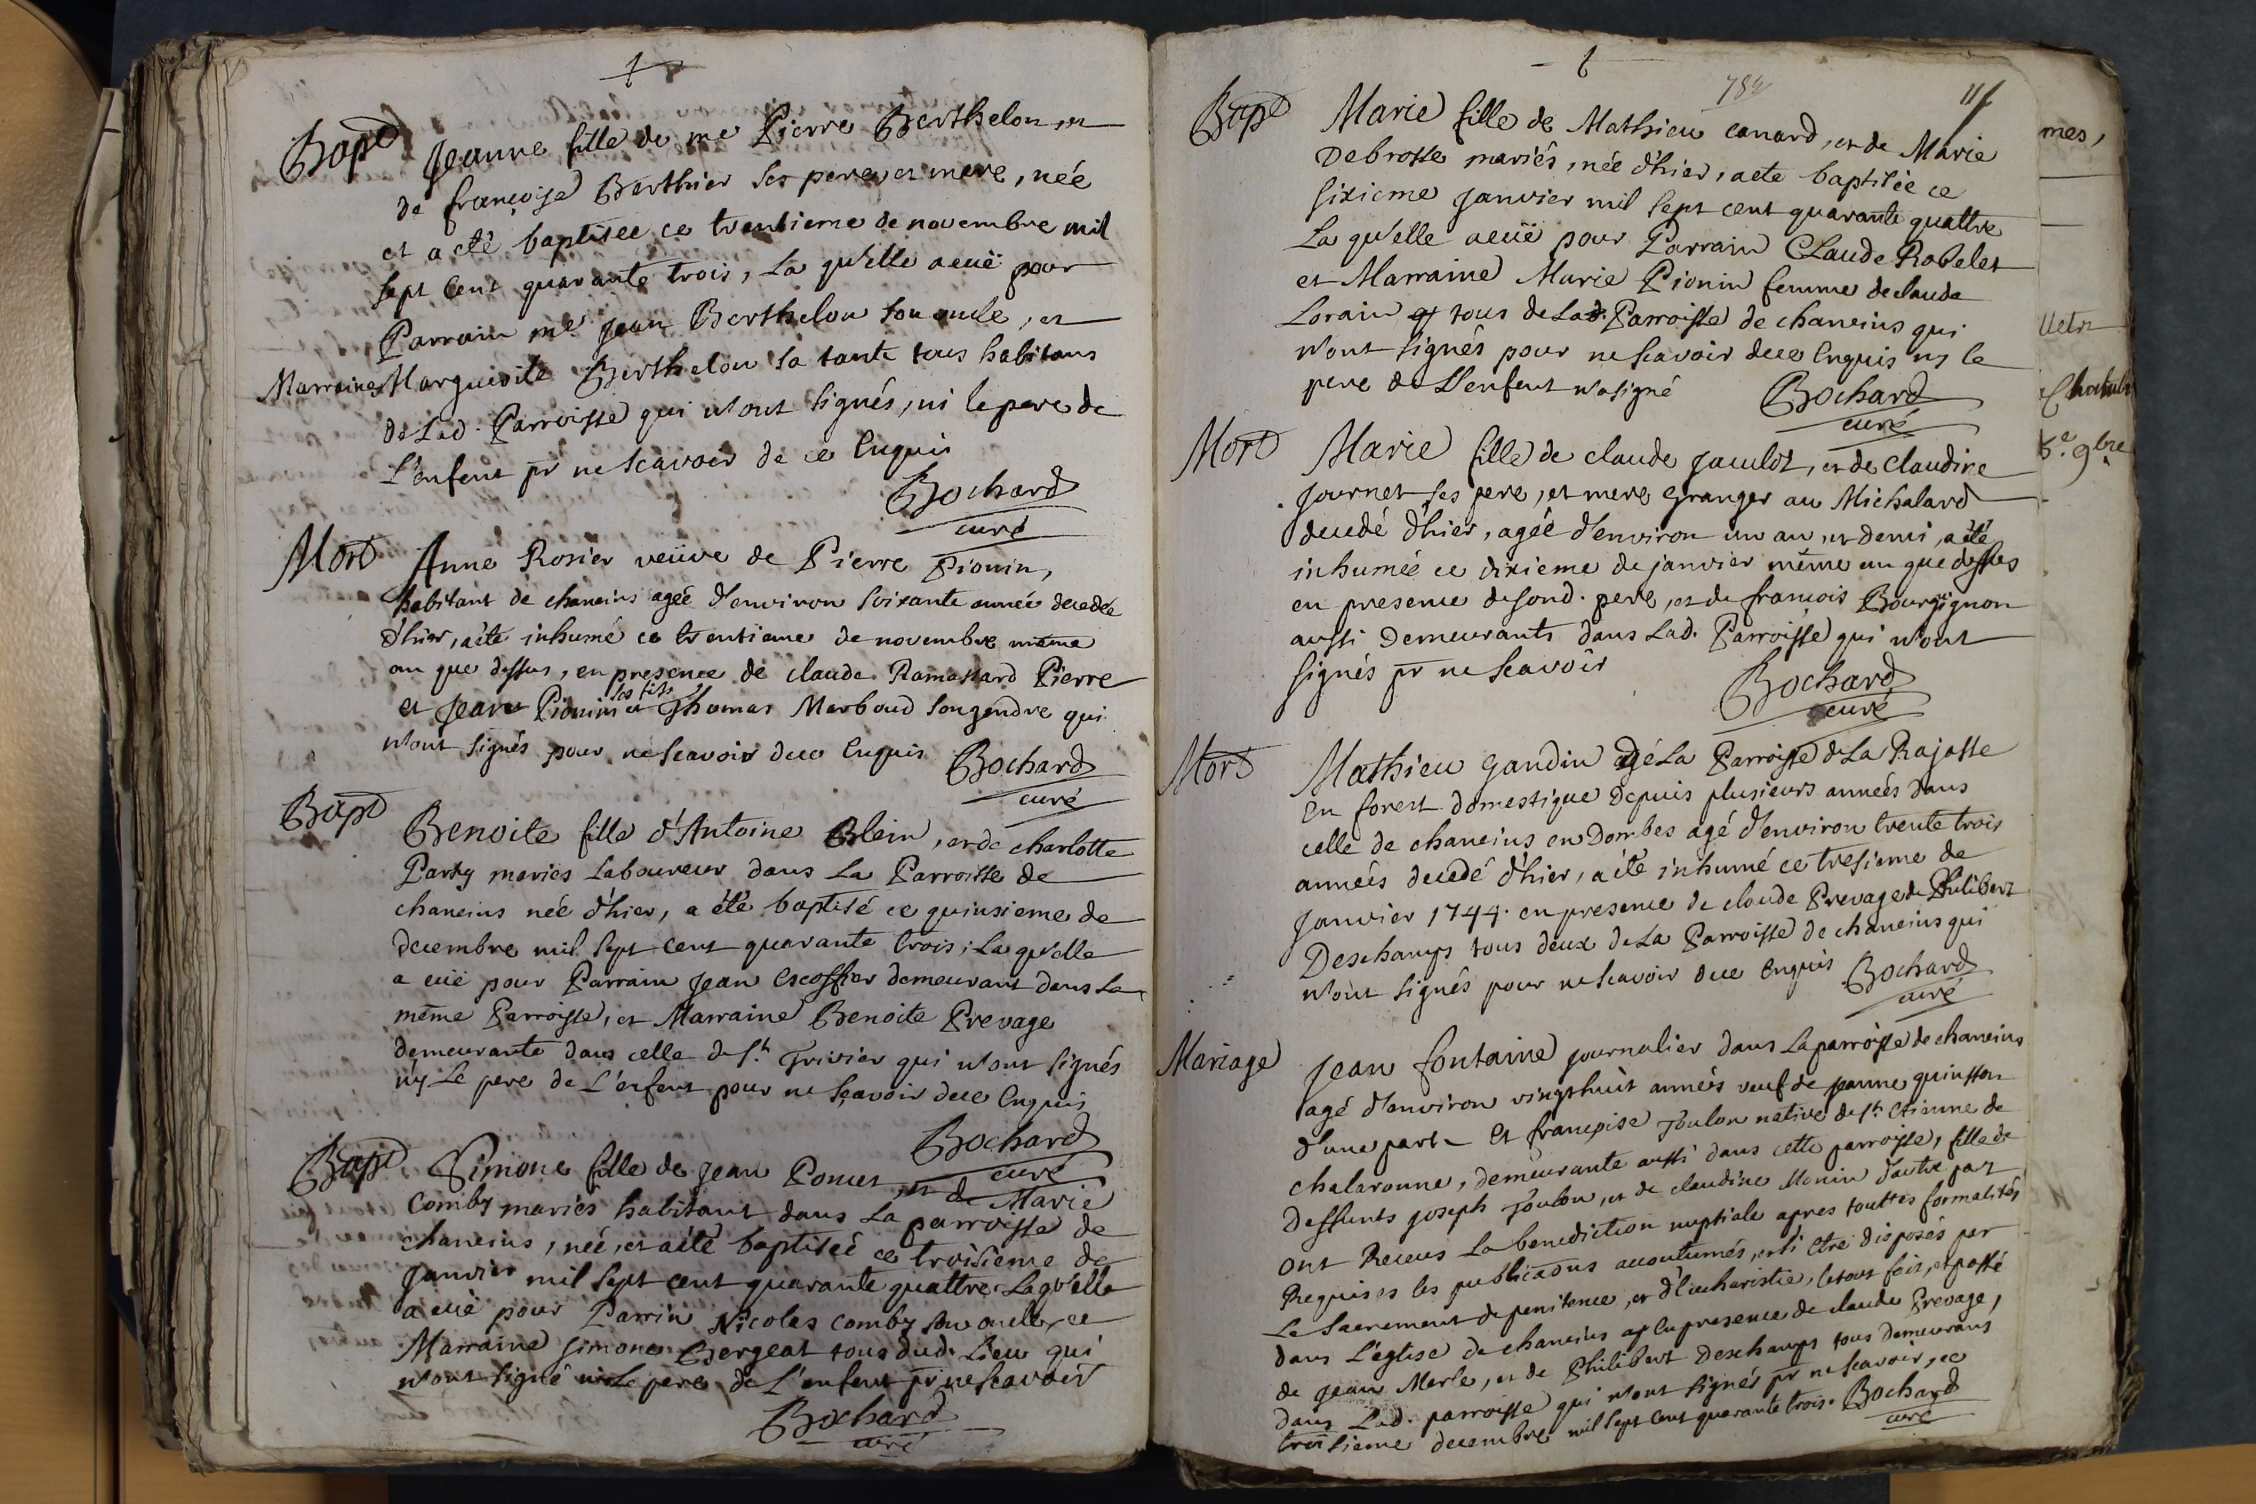 Bapt Jeanne fille de me Pierre Berthelon et
de françoise Berthier ses pere et mere, née
et a eté baptisée ce trentieme de novembre mil
sept cent quarante trois, La qu'elle a euë pour
Parrain me Jean Berthelon son oncle, et
Marraine Marguerite Berthelon sa tante tous habitans
de Lad. Parroisse qui n'ont signés, ni le pere de
L'enfent pr ne scavoir de ce Enquis
Bochard
curé
Mort Anne Rosier veüve de Pierre Pionin,
habitant de chaneins agéé d'environ soixante année decedée
d'hier, a eté inhumé ce trentieme de novembre même
an que dessus, en presence de claude Ramassard Pierre
et Jean Pionin ses fils et Thomas Marboud son gendre qui
n'ont signés pour ne scavoir de ce Enquis
Bochard
curé
Bapt Benoite fille d'Antoine Blein, et de charlotte
Party mariés Laboureur dans La Parroisse de
chaneins née d'hier, a été baptisé ce quinsieme de
decembre mil sept cent quarante trois; La qu'elle
a euë pour Parrain Jean Escoffier demeurant dans La
même Parroisse, et Marraine Benoite Prevage
demeurante dans celle de St Trivier qui n'ont signés
n'y Le pere de L'enfent pour ne scavoir de ce Enquis
Bochard
curé
Bapt Simone fille de Jean Poncet, et de Marie
Comby mariés habitant dans La parroisse de
chaneins, née, et a été baptiséé ce troisieme de
Janvier mil sept cent quarante quattre. Laqu'elle
a euë pour Parrin Nicolas Comby son oncle, et
Marraine Simone Bergeat tous dud. Lieu qui
n'ont signé ni Le pere de L'enfent pr ne scavoir
Bochard
curé
782
111
Bapt Marie fille de Mathieu canard, et de Marie
Debrosse mariés, née d'hier, a ete baptisée ce
sixieme Janvier mil sept cent quarante quattre
La qu'elle a euë pour Parrain Claude Robelet
et Marraine Marie Pionin femme de claude
Lorain tous de Lad. Parroisse de chaneins qui
n'ont signés pour ne scavoir de ce Enquis ny le
pere de L'enfent n'a signé
Bochard
curé
Mort Marie fille de claude Jaculot, et de claudine
Journet ses pere, et mere Granger au Michalard
decedé d'hier, agéé d'environ un an, et demi, a été
inhumée ce dixieme de janvier même an que dessus
en presence de sond. pere, et de francois Bourguignon
aussi demeurants dans Lad. Parroisse qui n'ont
signés pr ne scavoir
Bochard
curé
Mort Mathieu Gandin de La Parroisse de La Rajasse
En forest domestique depuis plusieurs années dans
celle de chaneins en Dombes agé d'environ trente trois
années decedé d'hier, a été inhumé ce tresieme de
Janvier 1744. en presence de claude Prevage de Philibert
Deschamps tous deux de La Parroisse de chaneins qui
n'ont signés pour ne scavoir de ce Enquis
Bochard
curé
Mariage Jean fontaine journalier dans La parroisse de chaneins
agé d'environ vingt huit années veuf de Jeanne quinson
d'une part Et françoise Toulon native de St Etienne de
chalaronne, demeurante aussi dans cette parroisse, fille de
deffunts Joseph Toulon, et de claudine Monin d'autre part
ont Receus La benediction nuptiale apres touttes formalités
Requises les publica͠ons accoutumés, et s'être disposés par
Le sacrement de penitence, et d'Eucharistie, le tout fait, et passé
dans L'église de chaneins En presence de claude Prevage,
de Jean Merle, et de Philibert Deschamps tous demeurans
dans Lad. parroisse qui n'ont signés pr ne scavoir, ce
troisieme decembre mil sept cent quarante trois.
Bochard
curé
mes,
9bre